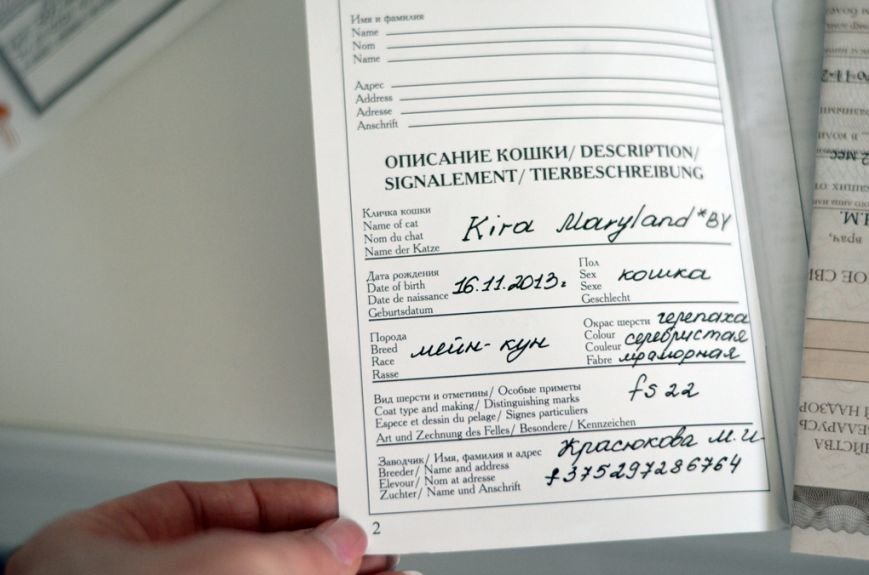 Имя и фамилия
Name
Nom
Name
Адрес
Address
Adresse
Anschrift
ОПИСАНИЕ КОШКИ/ DESCRIPTION/
SIGNALEMENT/ TIERBESCHREIBUNG
Кличка кошки
Name of cat
Nom du chat
Name der Katze
Kira Maryland *BY
Дата рождения
Date of birth
Date de naissance
Geburtsdatum
16.11.2013г
Пол
Sex
Sexe
Geschlecht
кошка
Порода
Breed
Race
Rasse
мейн-кун
Окрас шерсти черепаха
Colour серебристая
Couleur мраморная
Fabre
Вид шерсти и отметины/ Особые приметы
Coat type and making/ Distinguishing marks
Espece et dessin du pelage/ Signes particuliers
Art und Zechnung des Felles/ Besondere/ Kennzeichen
fs 22
Заводчик/ Имя, фамилия и адрес
Breeder/ Name and address
Elevour/ Nom at adresse
Zuchter/ Name und Anschrift
Красюкова М.И
+375297286764
2